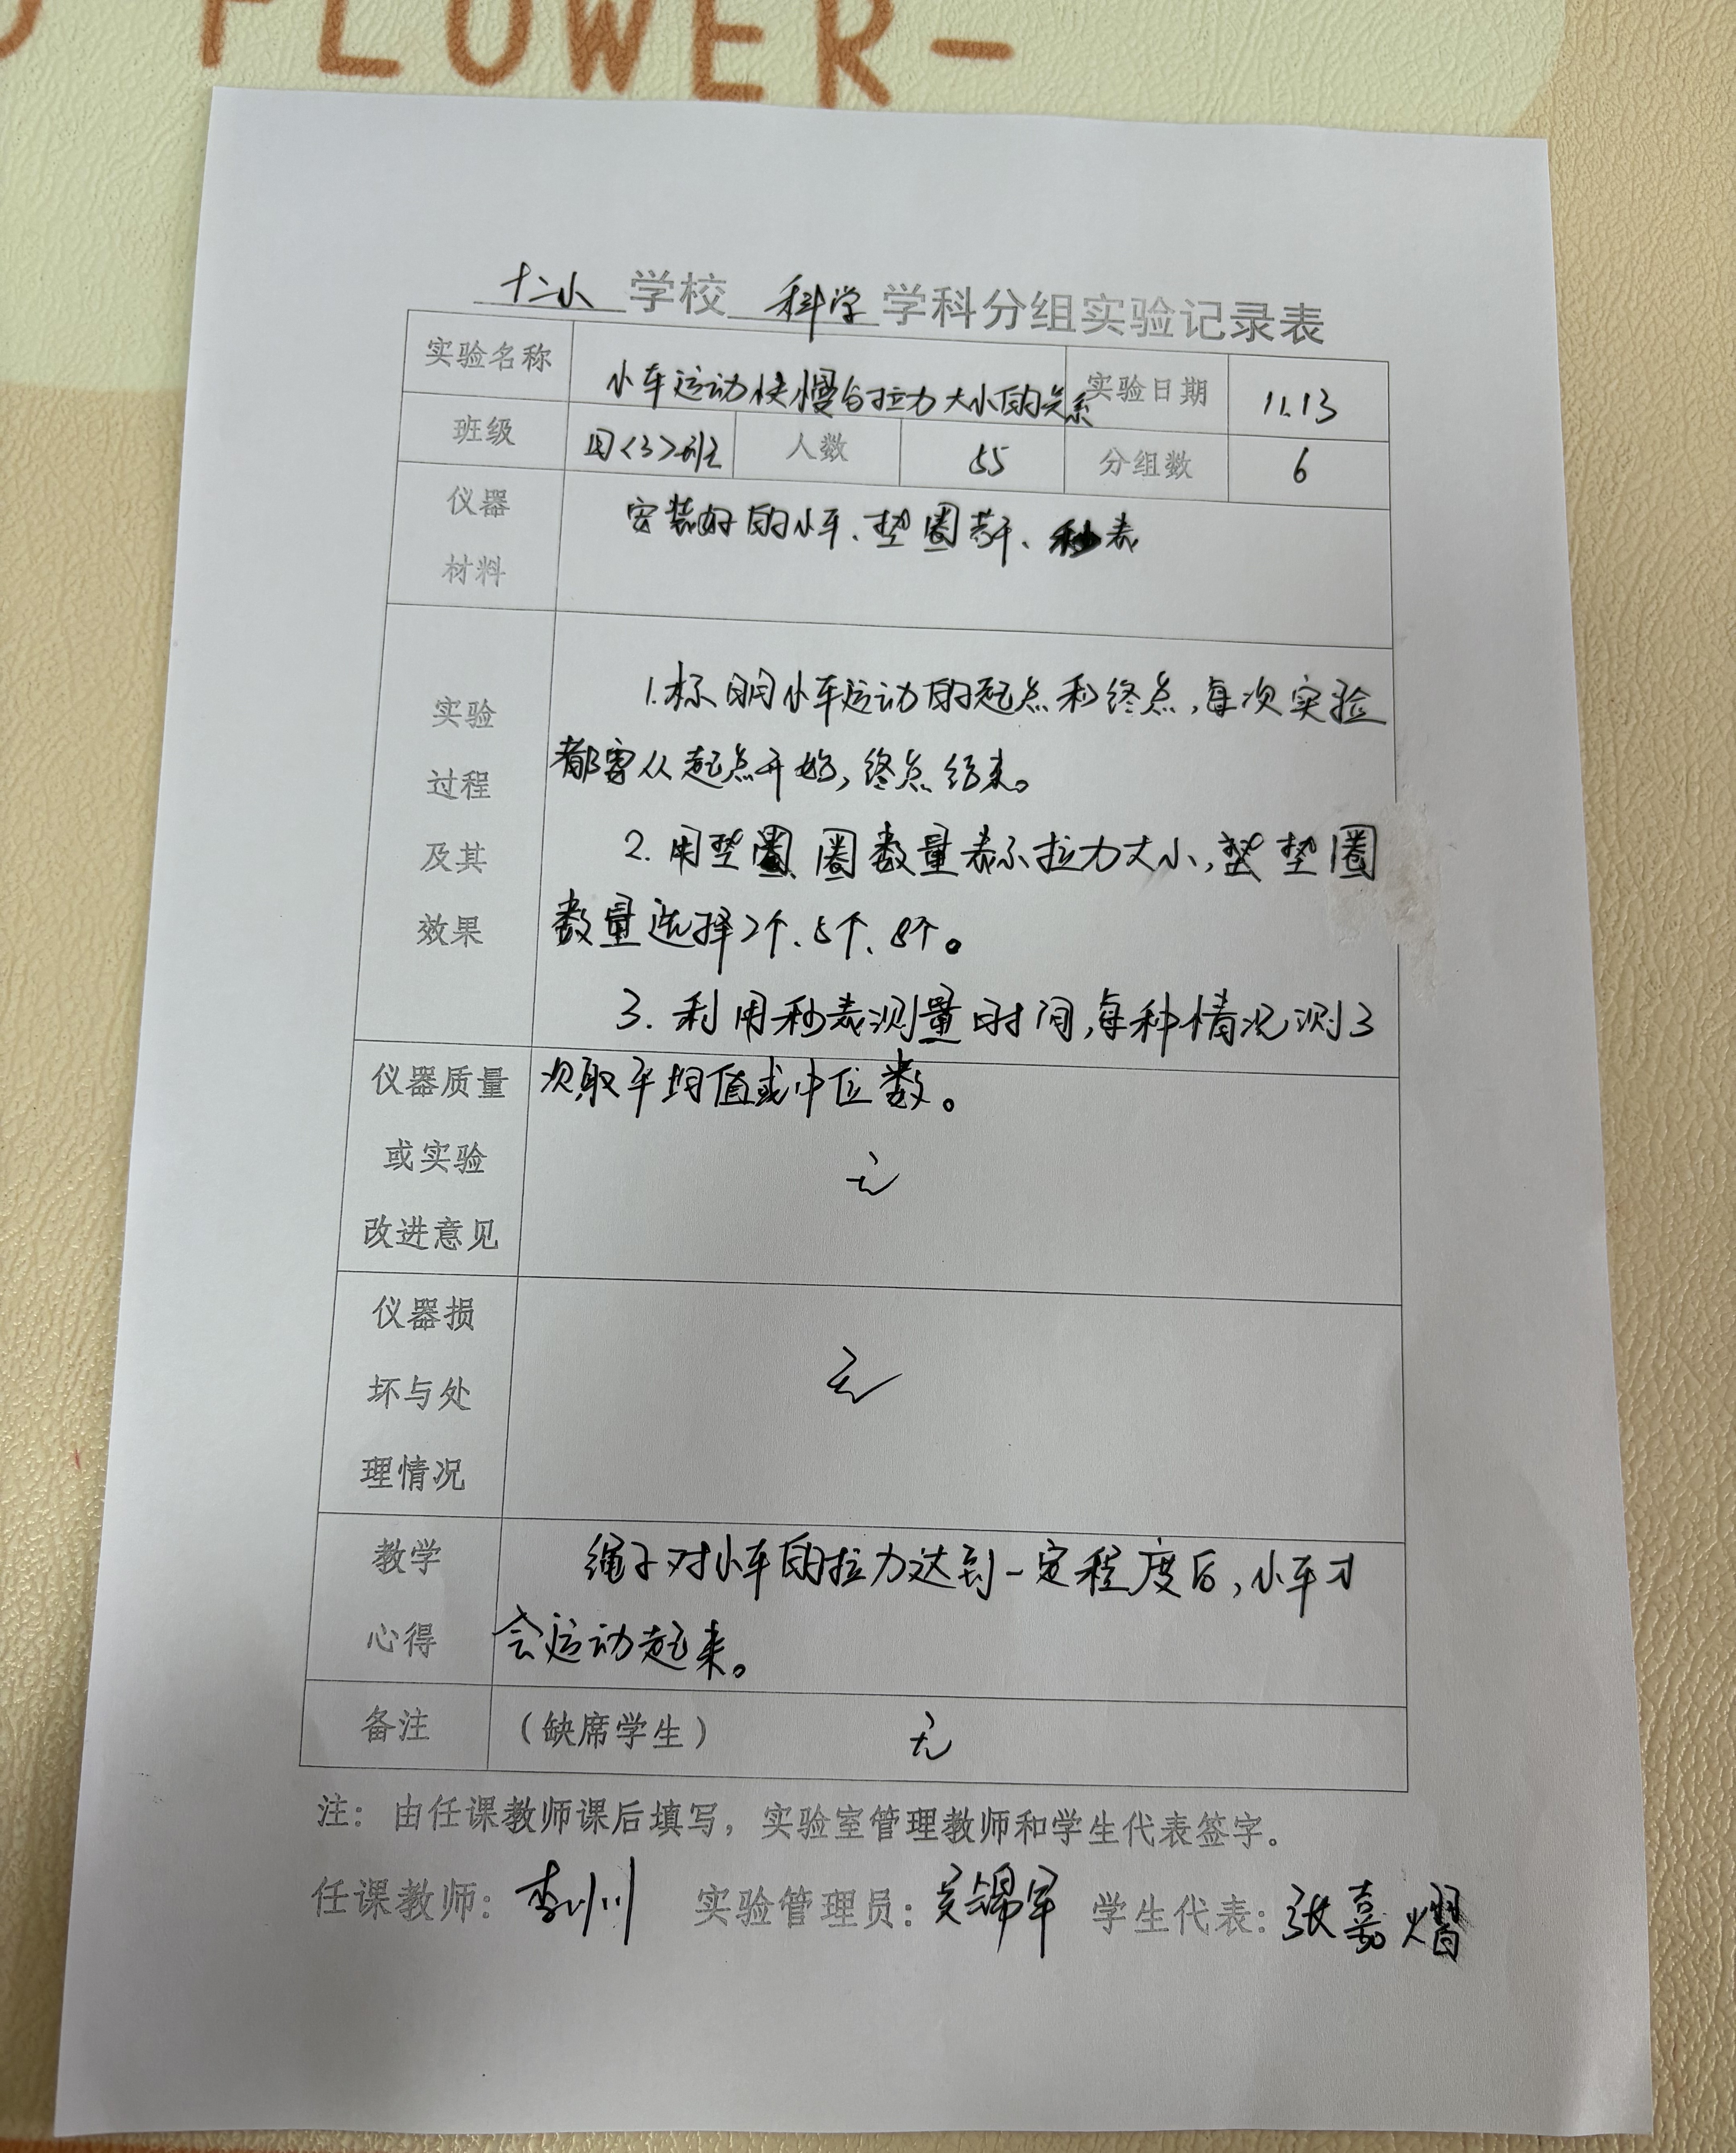 FLOWER-
十二小 学校 科学 学科分组实验记录表
实验名称 小车运动快慢与拉力大小的关系 实验日期 11.13
班级 四<3>班 人数 55 分组数 6
仪器材料 安装好的小车、垫圈若干、秒表
实验过程及其效果
1.标明小车运动的起点和终点,每次实验
都要从起点开始,终点结束。
2.用垫圈 圈数量表示拉力大小,垫 垫圈
数量选择2个、5个、8个。
3.利用秒表测量时间,每种情况测3
次取平均值或中位数。
仪器质量或实验改进意见 无
仪器损坏与处理情况 无
教学心得
绳子对小车的拉力达到一定程度后,小车才
会运动起来。
备注 (缺席学生) 无
注:由任课教师课后填写,实验室管理教师和学生代表签字。
任课教师:李川 实验管理员:吴锦军 学生代表:张嘉熠